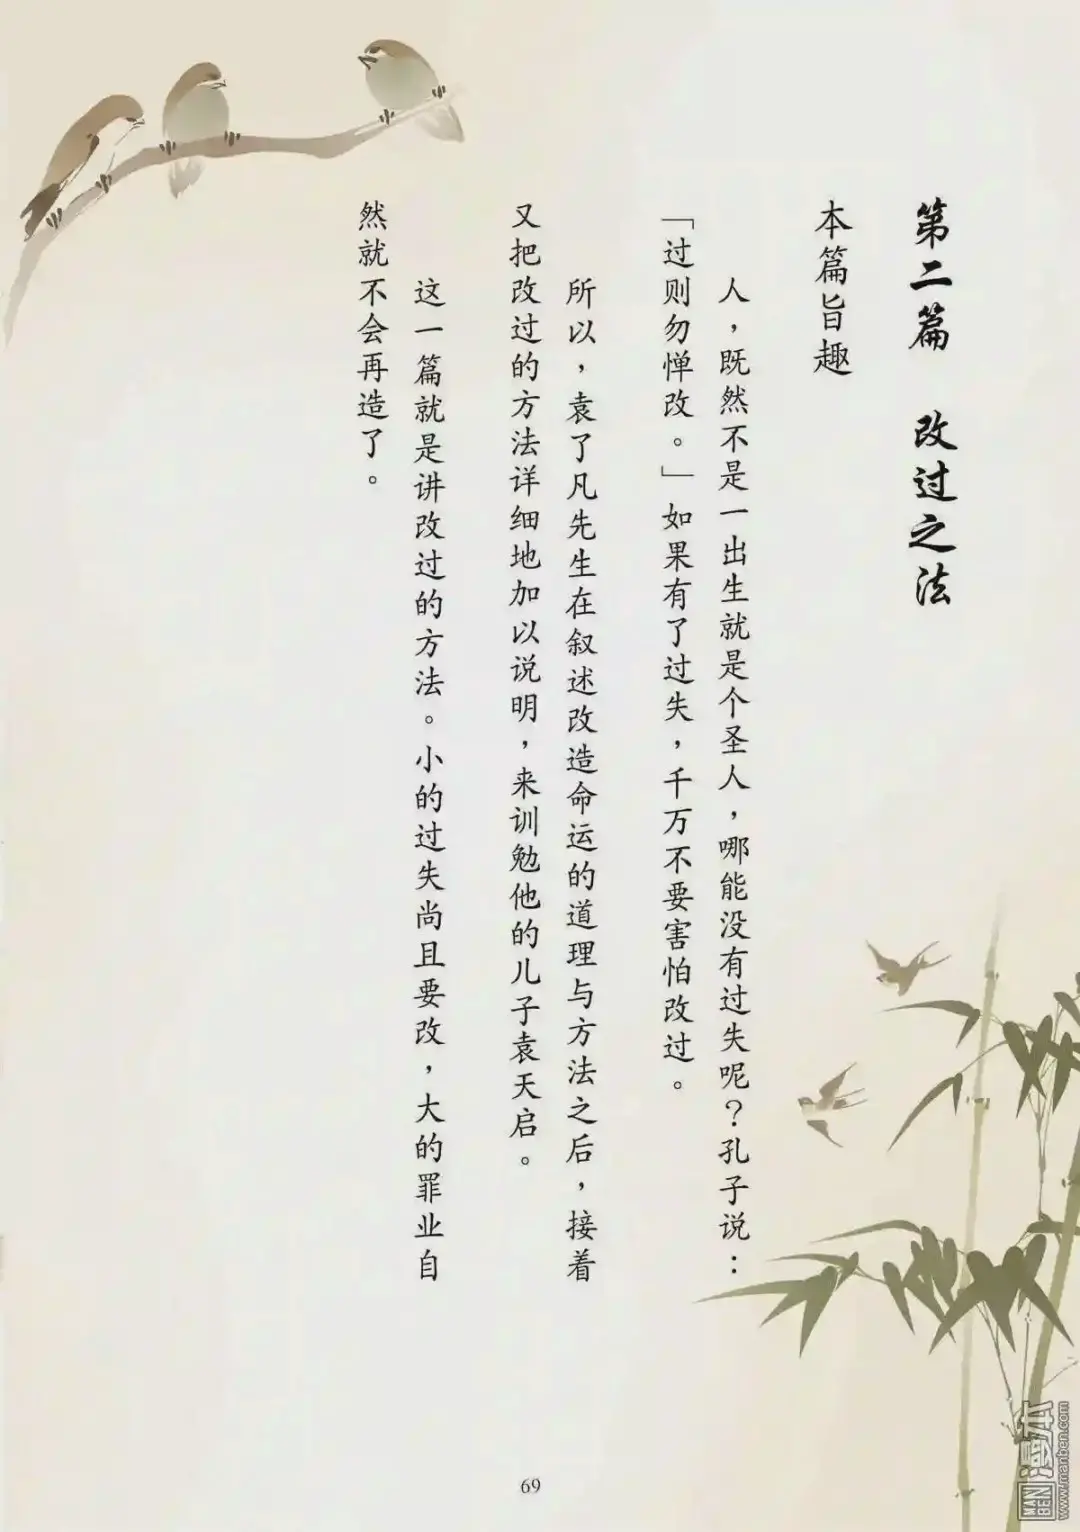 第二篇　改过之法
本篇旨趣
人，既然不是一出生就是个圣人，哪能没有过失呢？孔子说：
「过则勿惮改。」如果有了过失，千万不要害怕改过。
所以，袁了凡先生在叙述改造命运的道理与方法之后，接着
又把改过的方法详细地加以说明，来训勉他的儿子袁天启。
这一篇就是讲改过的方法。小的过失尚且要改，大的罪业自
然就不会再造了。
69
MAN
BEN
漫本
www.manben.com